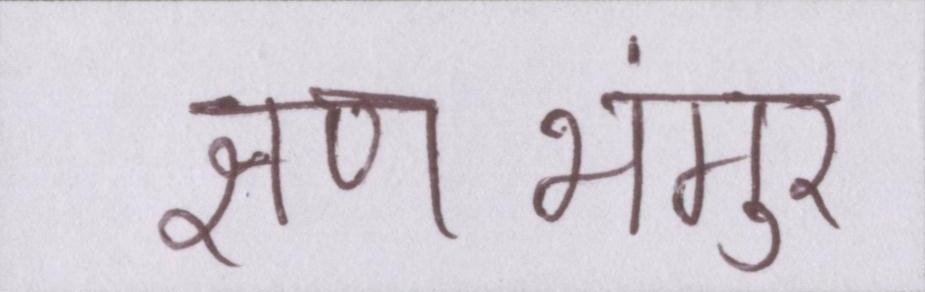 क्षण भंगुर